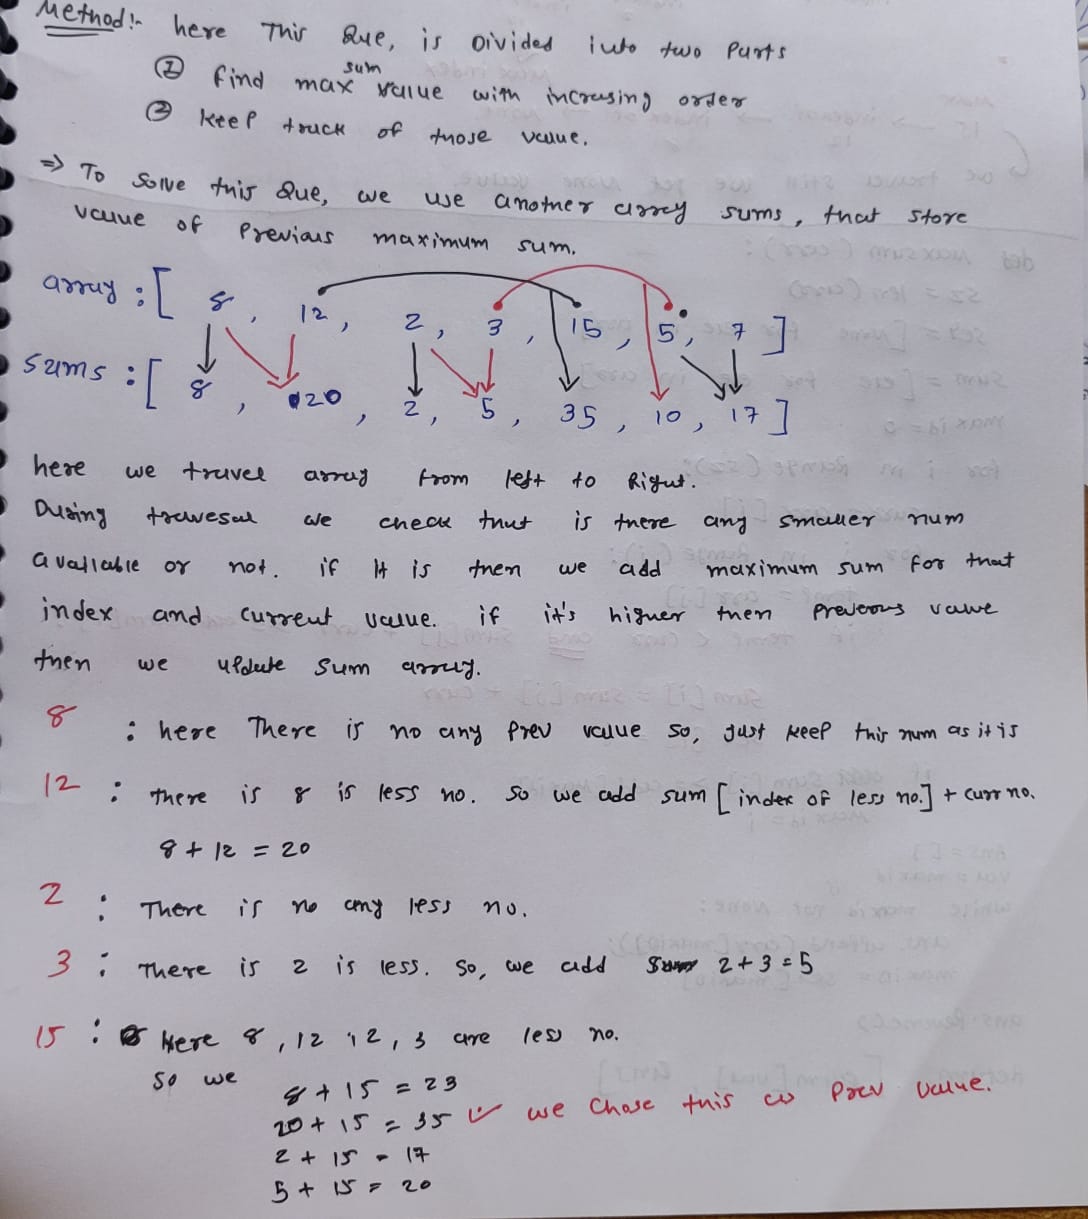 Method:- here This Que, is Divided into two Parts
① find max sum value with incresing order
② keep track of those value.
=> To Solve this Que, we use another array sums, that store
value of Previous maximum sum.
array : [ 8, 12, 2, 3, 15, 5, 7 ]
sums : [ 8, 20, 2, 5, 35, 10, 17 ]
here we travel array from left to Right.
During travesal we check that is there any smaller num
available or not. if it is then we add maximum sum for that
index and current value. if it's higher then preveous value
then we update sum array.
8 : here There is no any prev value so, Just keep this num as it is
12 : there is 8 is less no. so we add sum [ index of less no.] + curr no.
8 + 12 = 20
2 : There is no any less no.
3 : There is 2 is less. so, we add 2 + 3 = 5
15 : Here 8, 12, 2, 3 are less no.
so we
8 + 15 = 23
20 + 15 = 35 ✓ we chose this as prev value.
2 + 15 = 17
5 + 15 = 20